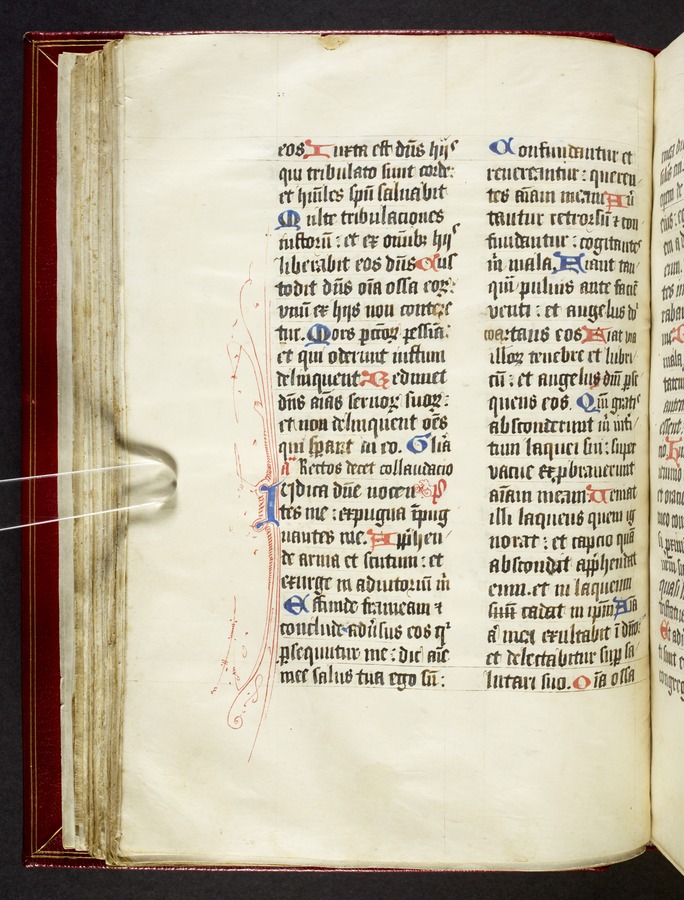 eos Iuxta est dñs hijs
qui tribulato sunt corde:
et hũiles spũ saluabit
Multe tribulaciones
iustorũ: et ex omnibꝫ hijs
liberabit eos dñs Cus
todit dñs oĩa ossa eoꝝ:
vnũ ex hijs non contere
tur. Mors pctoꝝ pessĩa:
et qui oderunt iustum
delinquent Redimet
dñs aĩas seruoꝝ suoꝝ:
et non delinquent oẽs
qui sperãt in eo. Glĩa
Rectos decet collaudacio
Iudica dñe nocen
tes me: expugna ĩpug
nantes me. Apphen
de arma et scutum: et
exurge in adiutoriũ m̃
Effunde frameam ⁊
conclude aduersus eos qͥ
ꝑsequuntur me: dic aĩe
mee salus tua ego sũ:
Confundantur et
reuereantur: queren
tes aĩam meam Auer
tantur retrorsũ ⁊ con
fundantur: cogitantes
m̃ mala, Fiant tan
qũ puluis ante faciẽ
venti: et angelus dñi
coartans eos Fiat via
illoꝝ tenebre et lubri
cũ: et angelus dñi ꝑse
quens eos. Qm̃ gratis
absconderunt m̃ inti
tum laquei sui: super
vacue exprobrauerunt
aĩam meam Ueniat
illi laqueus quem ig
norat: et capcio quã
abscondit apphendat
eum. et in laqueum
suũ cadat in ipm̃ Aĩa
ã mea exultabit ĩ dño
et delectabitur supꝑ sa
lutari suo. Oĩa ossa